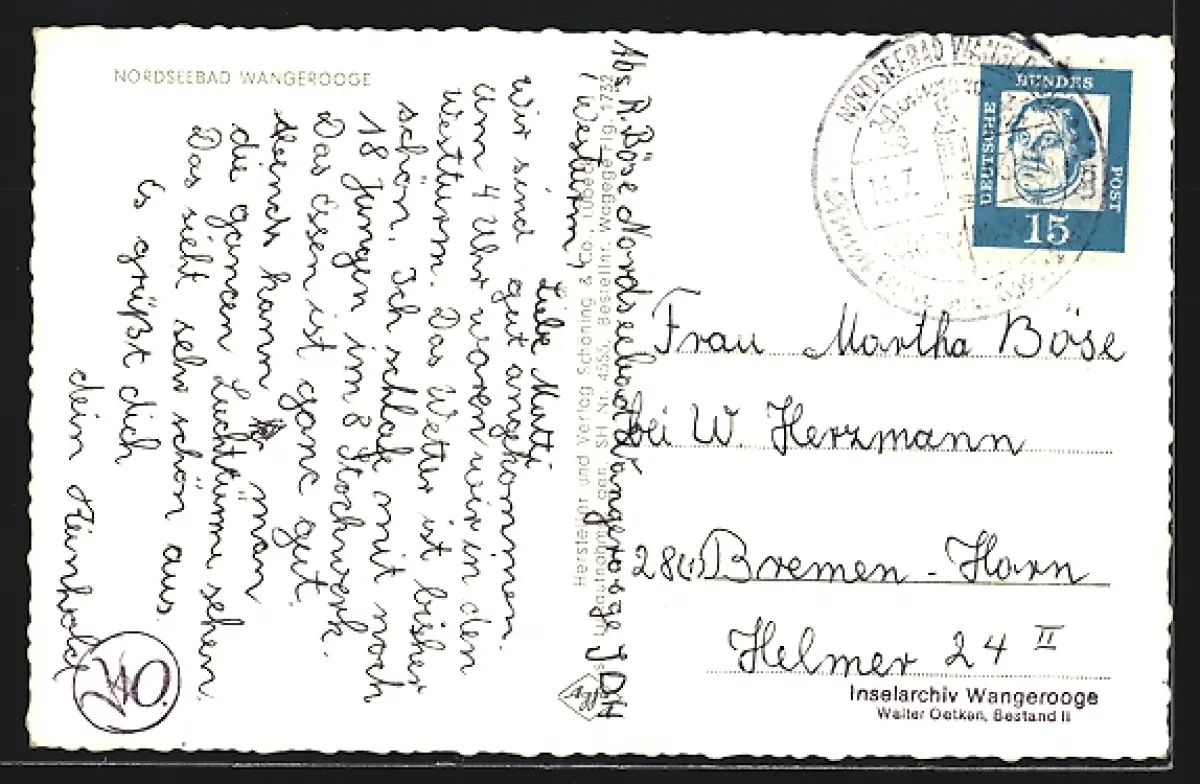 NORDSEEBAD WANGEROOGE
Liebe Mutti
Wir sind gut angekommen.
Um 4 Uhr waren wir in den
Westturm. Das Wetter ist bisher
schön. Ich schlafe mit noch
18 Jungen im 8 Stockwerk.
Das Essen ist ganc gut.
kann man
die gancen Luchttürme sehen
Das sieht sehr schön aus.
Es grüßt dich
dein Reinhold
Hersteller und Verlag Schöning & Co., Lübeck
Luftaufnahme SH Nr. 4555, Bestellnr. Wagerlg 1732
Agfa
Abs. R. Böse Nordseebad Wangerooge JDH
(Westturm)
NORDSEEBAD WANGEROOGE
DEUTSCHE
BUNDES
POST
15
Frau Martha Böse
bei W. Herzmann
28 Bremen - Horn
Helmer 24 II
Inselarchiv Wangerooge
Walter Oetken, Bestand II